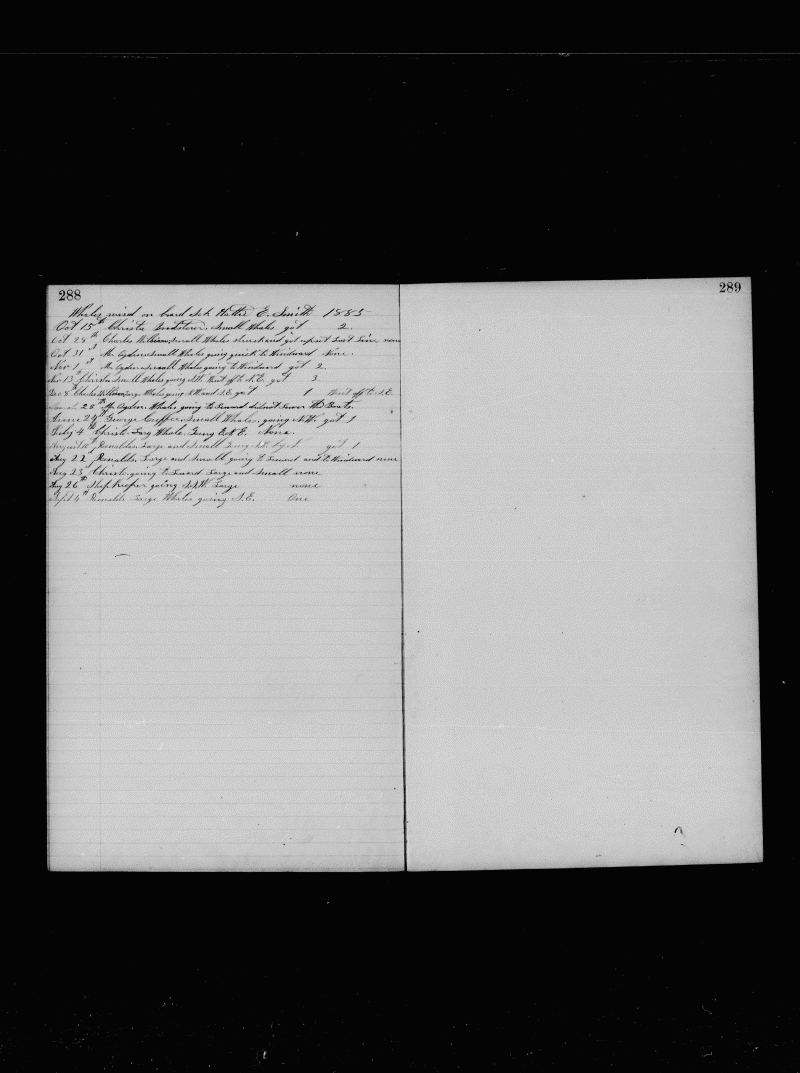 288
289
Whales raised on board Sch Hattie E. Smith 1885
Oct 15th Christie Small Whales got 2.
Oct 24th Charles Williams, Small Whales struck and got upset Lost Line none
Oct 31st Mr Ogden Small Whales going quick to Windward None.
Nov 1st Mr Ogden Small Whales going to Windward got 2.
Nov 13th Christie Small Whales going Went off to N.E. got 3.
Dec 8th Charles Williams, Large Whales going N.W. and S.E. got 1 Went off to S.E.
28th Mr Ogden. Whales going to Leeward did not Lower the Boats.
June 24th George Small Whales, going N.W. got 1
July 4th Christie Large Whale. Going E. None.
August Ronaldo Large and Small Going got 1
Aug 22 Ronaldo. Large and Small going to Leeward and to Windward none
Aug 23 Christie going to Leeward Large and Small none
Aug 26th Ship Keeper going S.S.W. Large none
Sept 4th Ronaldo Large Whales going S.E. One